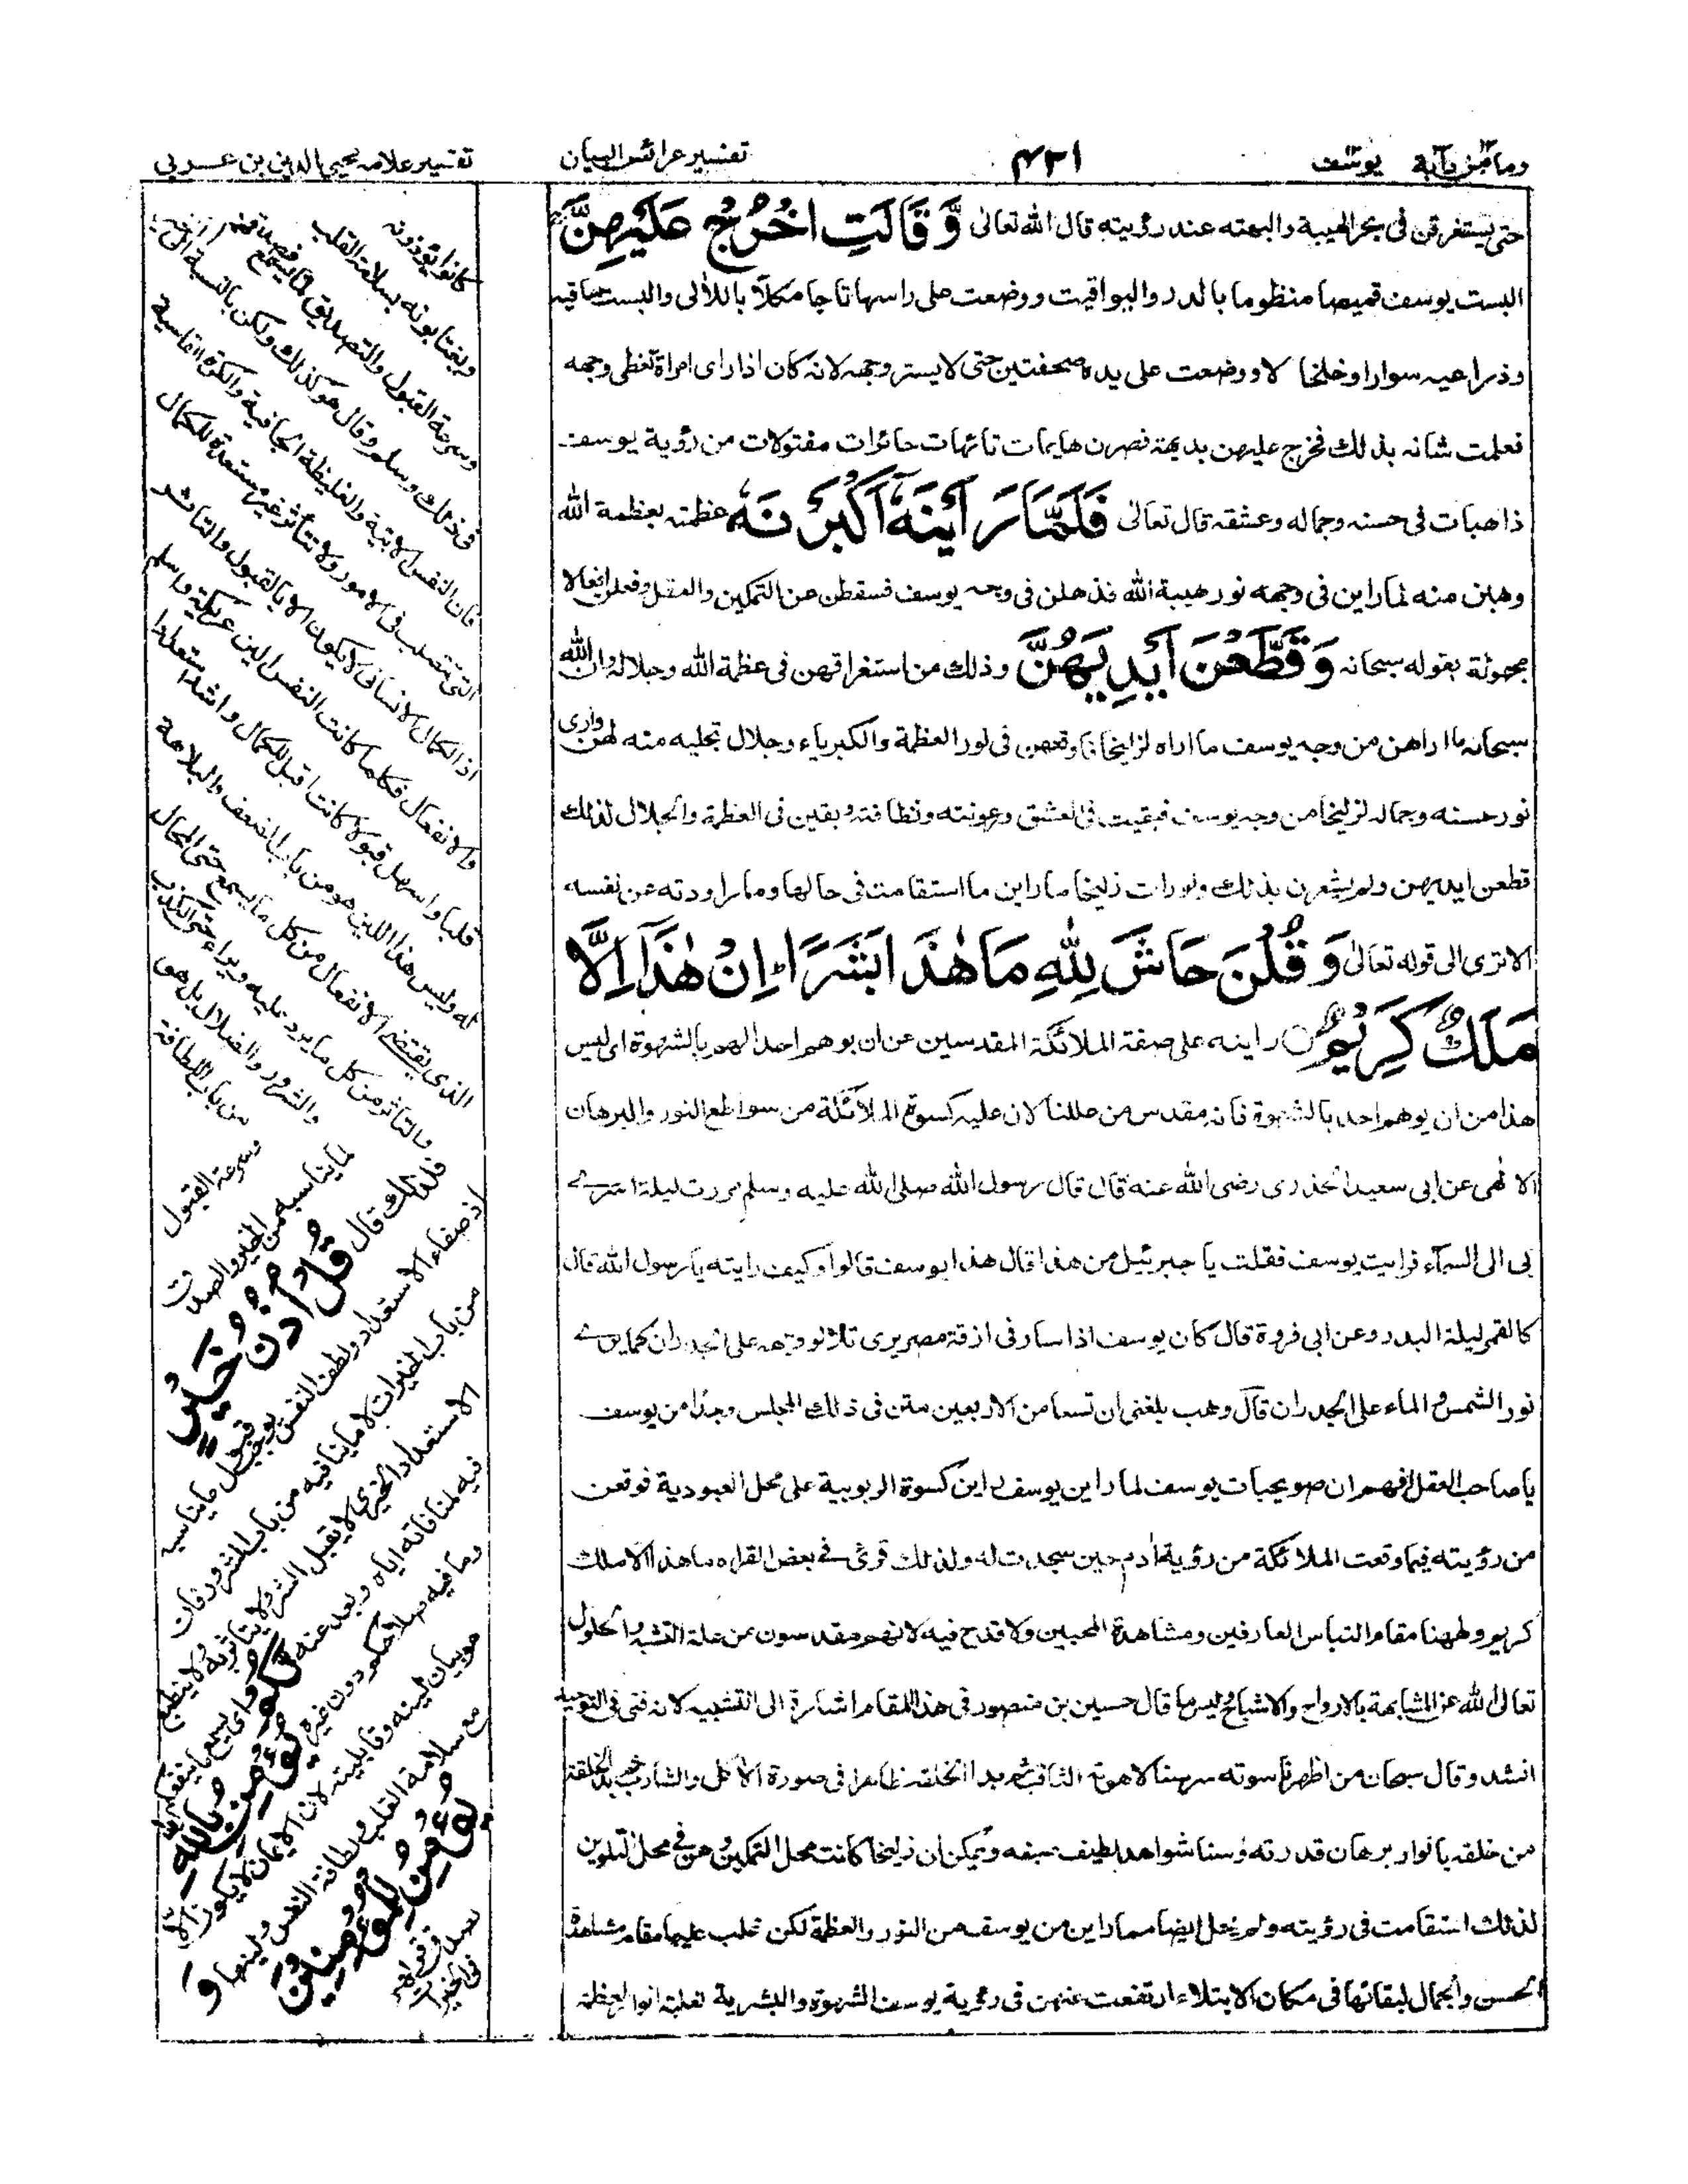 وما من دابة يوسف ۴۲۱ تفسير عرائس البيان تفسير علامه محيى الدين بن عربى
حتى يستغرقن فى بحر الهيبة والبهتة عند رؤيته قال الله تعالى وَّقَالَتِ اخْرُجْ عَلَيْهِنَّ
البست يوسف قميصا منظوما بالدر واليواقيت ووضعت على راسها تاجا مكللا باللآلى والبست ساقيه
وذراعيه سوارا وخلخالا ووضعت على يده صحفتين حتى لا يستر وجهه لانه كان اذا راى امراة تغطى وجهه
فعلمت شانه بذلك فخرج عليهن بديهة فصرن هايمات تائهات حائرات مفتولات من رؤية يوسف
ذاهبات فى حسنه وجماله وعشقه قال تعالى فَلَمَّا رَاَيْنَهٗٓ اَكْبَرْنَهٗ عظمته بعظمة الله
وهبن منه لما راين فى وجهه نور هيبة الله فذهلن فى وجه يوسف فسقطن عن التمكين والعقل وفعلن افعالا
مجهولة بقوله سبحانه وَقَطَّعْنَ اَيْدِيَهُنَّ وذلك من استغراقهن فى عظمة الله وجلاله وان الله
سبحانه ما اراهن من وجه يوسف ما اراه لزليخا وقعهن فى نور العظمة والكبرياء وجلال تجليه منه لهن وارى
نور حسنه وجماله لزليخا من وجه يوسف فبقيت فى العشق ورعونته ولطافته وبقين فى العظمة والجلال لذلك
قطعن ايديهن ولم يشعرن بذلك ولو رات زليخا ما راين ما استقامت فى حالها وما راودته عن نفسه
الا ترى الى قوله تعالى وَقُلْنَ حَاشَ لِلّٰهِ مَا هٰذَا بَشَرًا اِنْ هٰذَآ اِلَّا
مَلَكٌ كَرِيْمٌ راينه على صفة الملائكة المقدسين عن ان يوهم احد اليهم بالشهوة اى ليس
هذا من ان يوهم احد بالشهوة فانه مقدس من عللنا لان عليه كسوة الملائكة من سواطع النور والبرهان
الالهى عن ابى سعيد الخدرى رضى الله عنه قال قال رسول الله صلى الله عليه وسلم مررت ليلة اسرى
بى الى السماء فرايت يوسف فقلت يا جبرئيل من هذا قال هذا يوسف قالوا وكيف رايته يا رسول الله قال
كالقمر ليلة البدر وعن ابى فروة قال كان يوسف اذا سار فى ازقة مصر يرى تلالؤ وجهه على الجدران كما يرى
نور الشمس والماء على الجدران قال وهب بلغنى ان تسعا من الاربعين متن فى ذلك المجلس وجدا من يوسف
يا صاحب العقل افهم ان صويحبات يوسف لما راين يوسف راين كسوة الربوبية على محل العبودية فوقعن
من رؤيته فيما وقعت الملائكة من رؤية ادم حين سجدت له ولذلك قرئ فى بعض القراه ما هذا الا ملك
كريم وههنا مقام التباس العارفين ومشاهدة المحبين ولا قدح فيه لانهم مقدسون عن علة التشبه والحلول
تعالى الله عن المشابهة بالارواح والاشباح وليس ما قال حسين بن منصور فى هذا المقام اشارة الى التشبيه لانه فنى فى التوحيد
انشد وقال سبحان من اظهر ناسوته سر سنا لاهوته الثاقب ثم بدا لخلقه ظاهرا فى صورة الاكل والشارب
من خلقه بانوار برهان قدرته وسنا شواهد لطيف صنعه ويمكن ان زليخا كانت محل التمكين وهن فى محل التلوين
لذلك استقامت فى رؤيته ولم يخل ايضا مما راين من يوسف من النور والعظمة لكن غلب عليها مقام مشاهدة
الحسن والجمال لبقائها فى مكان الابتلاء ارتفعت عنهن فى رؤية يوسف الشهوة والبشرية لغلبة انوار العظمة
كانوا يؤذونه
ويغتابونه بسلامة القلب
وسرعة القبول والتصديق لما يسمع
فى ذلك وسلم وقال هو كذلك ولكن بالنسبة الى
فان النفس الابية والغليظة الجافية والكزة القاسية
التى تتصلب فى الامور ولا تتأثر غير مستعدة للكمال
اذ الكمال الانسانى لا يكون الا بالقبول والتاثر
والانفعال فكلما كانت النفس الين عريكة واسلم
قلبا واسهل قبولا كانت اقبل للكمال واشد استعدادا
له وليس هذا اللين هو من باب الضعف والبلاهة
الذى يقتضى الانفعال من كل ما يسمع حتى المحال
والتاثر من كل ما يرد عليه ويراه حتى الكذب
والشرور والضلال بل هو
من باب اللطافة
وسرعة القبول
لما يناسبه من الخير والصدق
فلذلك قال قُلْ اُذُنُ خَيْرٍ
اذ صفاء الاستعداد ولطف النفس يوجب قبول ما يناسبه
من باب الخيرات لا ما ينافيه من باب الشرور فان
الاستعداد الخيرى لا يقبل الشر ولا يتاثر به ولا ينطبع
فيه لمنافاته اياه وبعده عنه لَّكُمْ اى يسمع ما ينفعكم
وما فيه صلاحكم دون غيره يُؤْمِنُ بِاللّٰهِ
هو بيان لينه وقابليته لان الايمان لا يكون الا
مع سلامة القلب ولطافة النفس ولينها وَ
يُؤْمِنُ لِلْمُؤْمِنِيْنَ